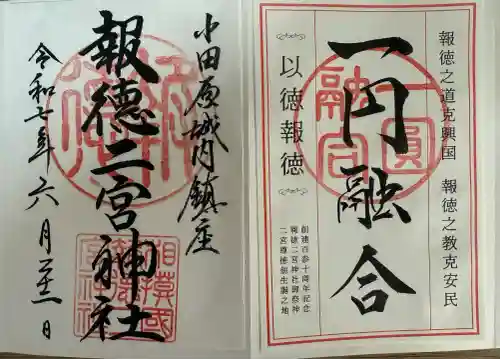 報徳之道克興国　報徳之教克安民
一円融合
一圓
融合
～以徳報徳～
創建百参十周年記念
報徳二宮神社御祭神
二宮尊徳翁生誕之地
小田原城内鎮座
報徳二宮神社
令和七年六月二十一日